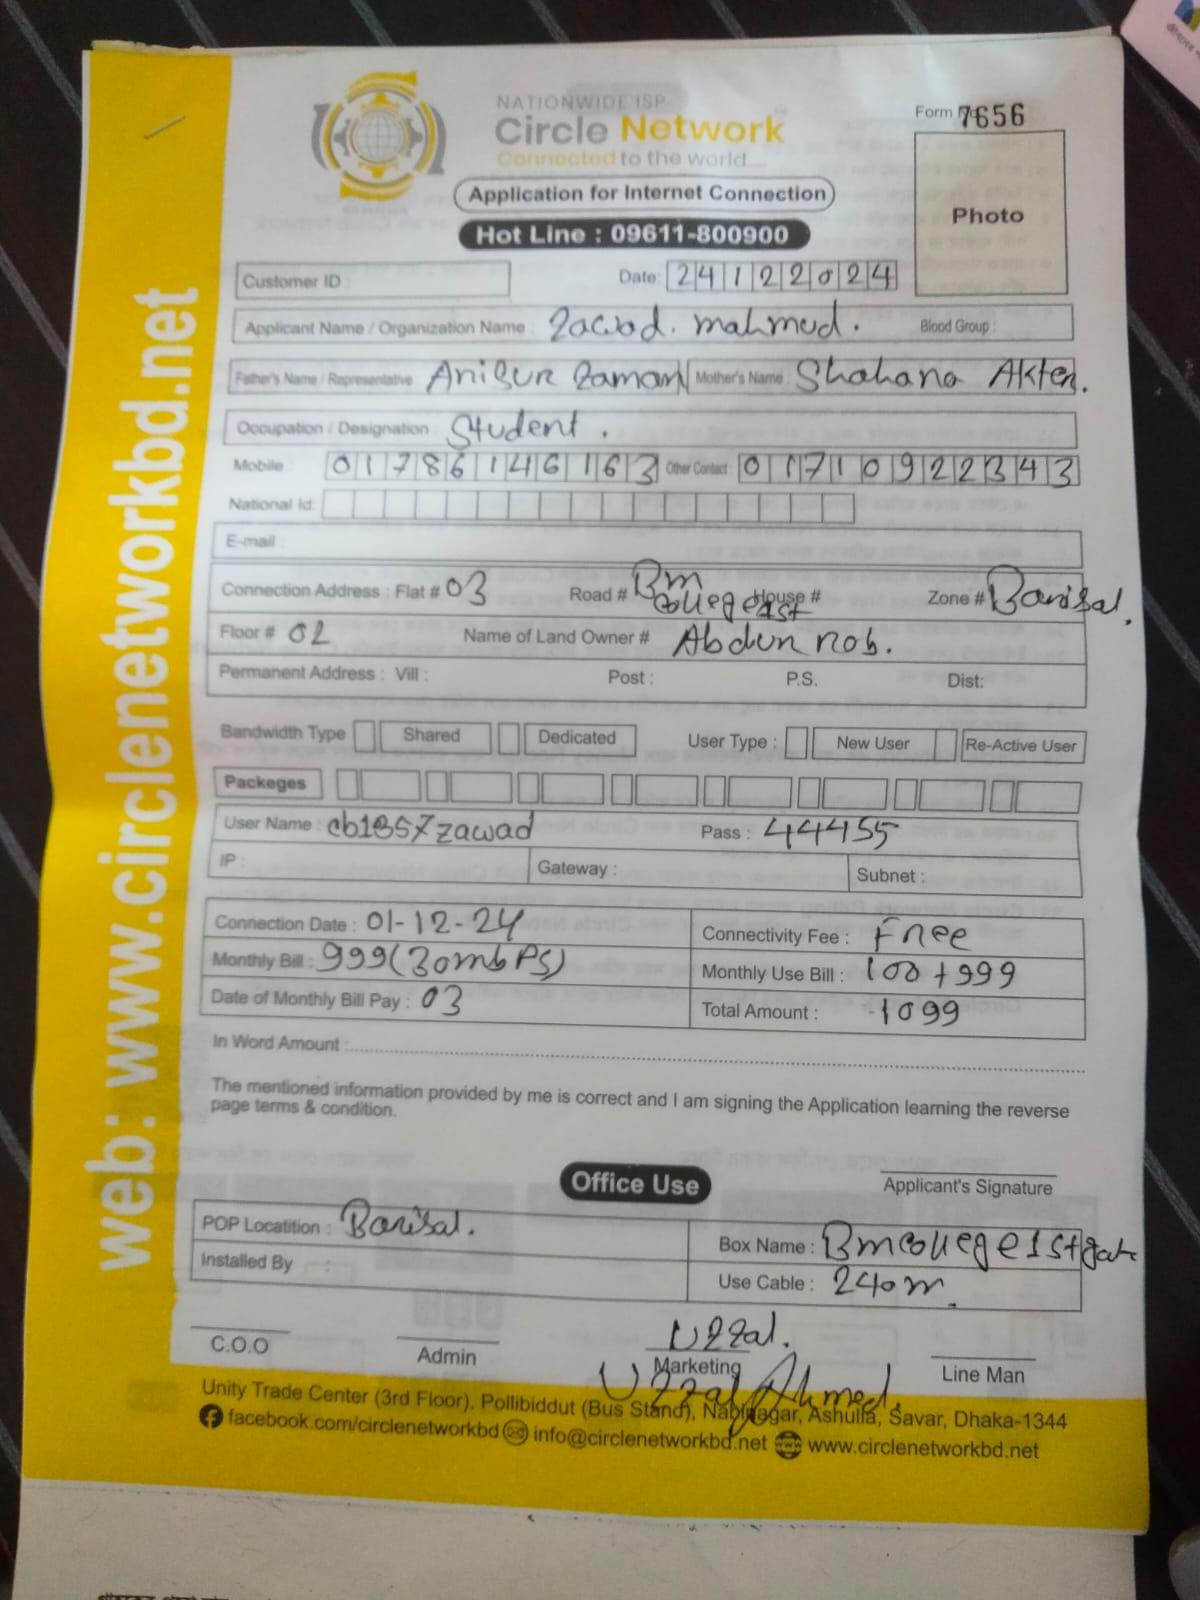 NATIONWIDE ISP
Circle Network
Connected to the world....
Form 7656
Application for Internet Connection
Photo
Hot Line : 09611-800900
Customer ID
Date: 24122024
Applicant Name / Organization Name : Zawad. mahmud. Blood Group :
Father's Name / Representative Anisur Zaman Mother's Name : Shahana Akter.
Occupation / Designation : Student.
Mobile : 01786146163 Other Contact : 01710922343
National Id:
E-mail :
Connection Address : Flat # 03 Road # Bm college 1st House # Zone # Barisal.
Floor # 02 Name of Land Owner # Abdur nob.
Permanent Address : Vill : Post : P.S. Dist:
Bandwidth Type Shared Dedicated User Type : New User Re-Active User
Packeges
User Name : cb1357zawad Pass : 44455
IP : Gateway : Subnet :
Connection Date : 01-12-24 Connectivity Fee : Free
Monthly Bill : 999(30mbPS) Monthly Use Bill : 100+999
Date of Monthly Bill Pay : 03 Total Amount : 1099
In Word Amount :
The mentioned information provided by me is correct and I am signing the Application learning the reverse
page terms & condition.
Office Use
Applicant's Signature
POP Locatition : Barisal. Box Name : Bmcollege 1st gate
Installed By : Use Cable : 240m.
Uzzal.
C.O.O Admin Marketing Line Man
Uzzal Ahmed.
Unity Trade Center (3rd Floor), Pollibiddut (Bus Stand), Nabinagar, Ashulia, Savar, Dhaka-1344
facebook.com/circlenetworkbd info@circlenetworkbd.net www.circlenetworkbd.net
web: www.circlenetworkbd.net